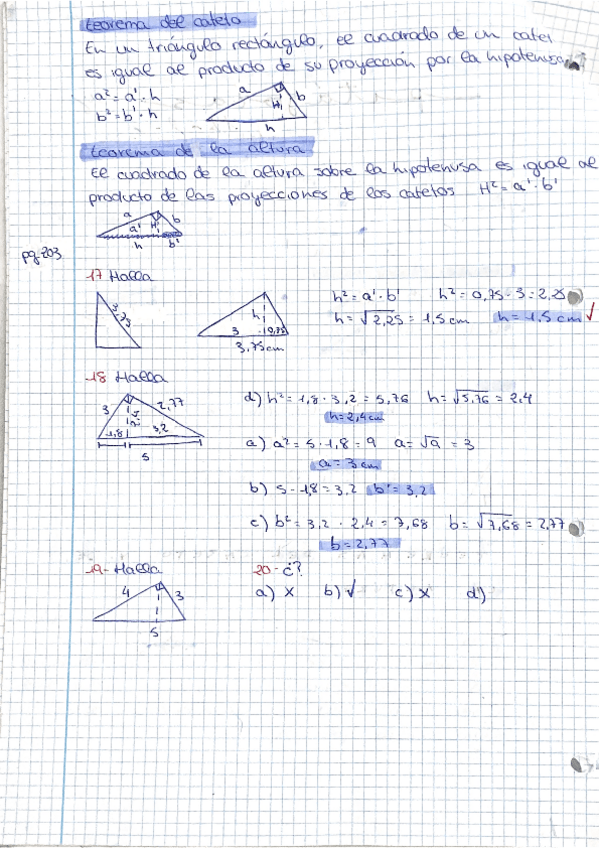 teorema del cateto
En un triángulo rectángulo, el cuadrado de un catet
es igual al producto de su proyección por la hipotenusa
a² = a' · h
b² = b' · h
a b H h
teorema de la altura
El cuadrado de la altura sobre la hipotenusa es igual al
producto de las proyecciones de los catetos H² = a' · b'
a b a' H h b'
pg. 203
17 Halla
h² = a' · b' h² = 0,75 · 3 = 2,25
h = √2,25 = 1,5 cm h = 1,5 cm √
h 3 0,75
3,75 cm
18 Halla
d) h² = 1,8 · 3,2 = 5,76 h = √5,76 = 2,4
h = 2,4 cm
3 2,77
1,8 3,2
5
a) a² = 5 · 1,8 = 9 a = √9 = 3
a = 3 cm
b) 5 - 1,8 = 3,2 b' = 3,2
c) b² = 3,2 · 2,4 = 7,68 b = √7,68 = 2,77
b = 2,77
19- Halla
4 3
5
20- ¿?
a) X b) √ c) X d)